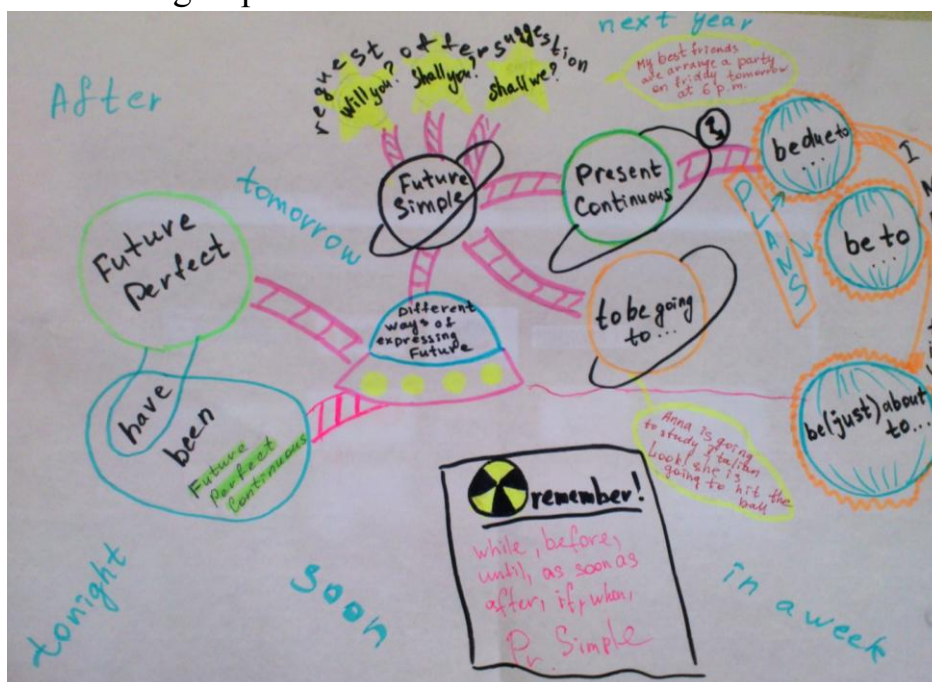 next year
request offer suggestion
will you?
Shall you?
shall we?
My best friends
are arrange a party
on friday tomorrow
at 6 p.m.
After
tomorrow
Future
Simple
Present
Continuous
be due to
...
PLANS
be to
...
I
Future
Perfect
to be going
to...
Different
ways of
expressing
Future
have
been
Future
Perfect
Continuous
be(just)about
to...
Anna is going
to study Italian
Look! she is
going to hit the
ball
remember!
while, before,
until, as soon as
after, if, when,
Pr. Simple
tonight
soon
in a week